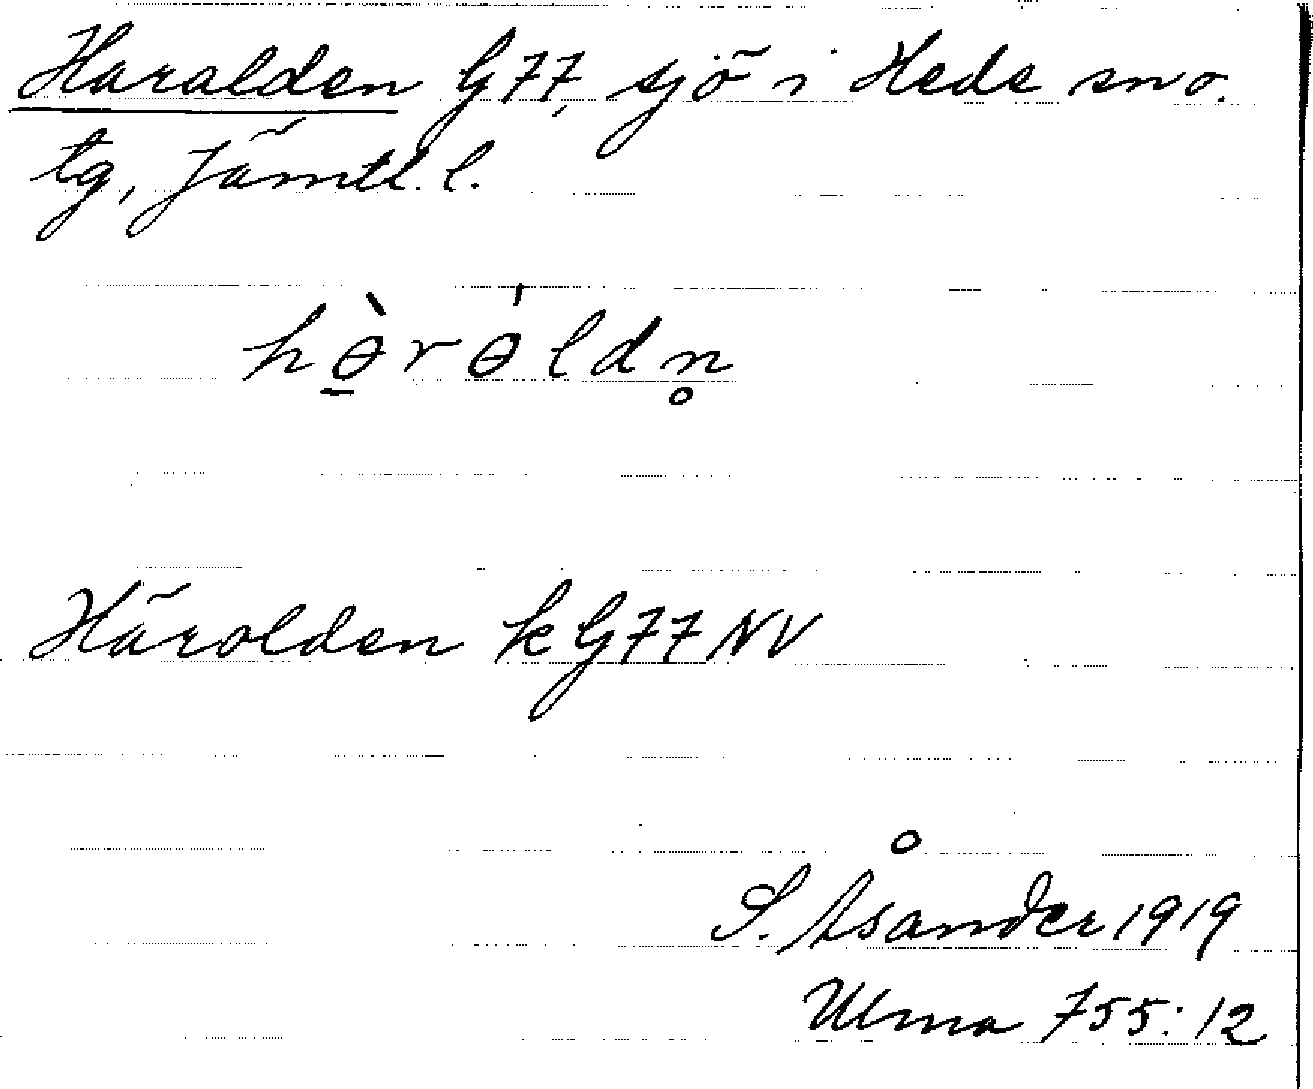 Haralden G77, sjö i Hede sno.
tg, Jämtl. l.
hɵ̠̀rɵ́ldn̥
Härolden k G77 NV
S. Åsander 1919
Ulma 755:12